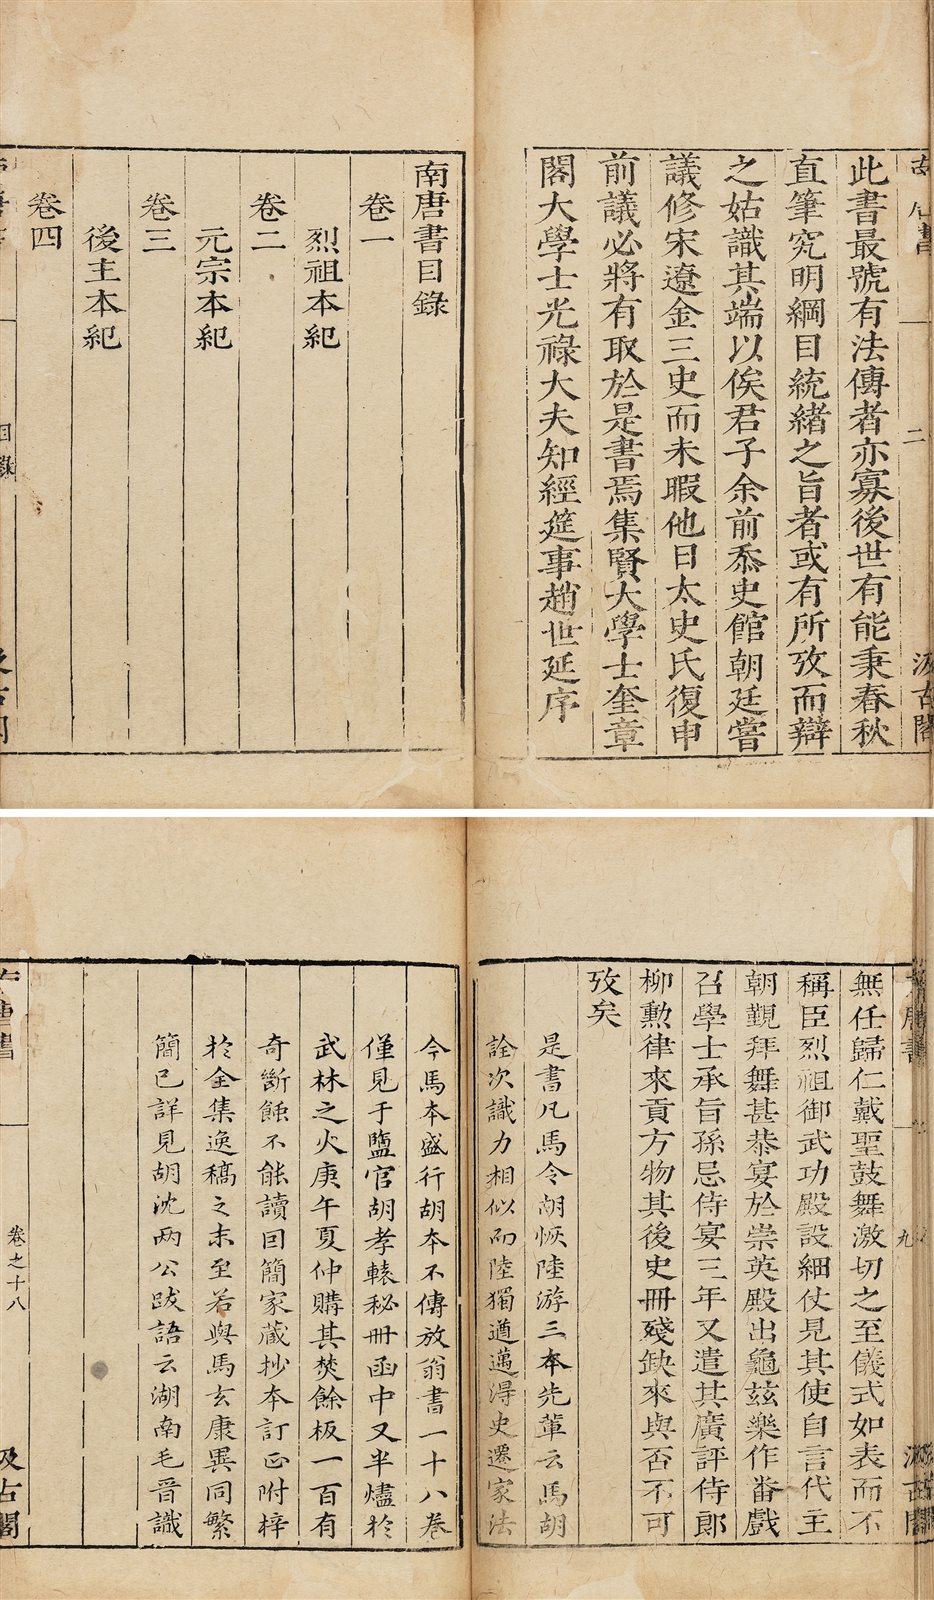 此書最號有法傳者亦寡後世有能秉春秋
直筆究明綱目統緒之旨者或有所攷而辯
之姑識其端以俟君子余前忝史館朝廷嘗
議修宋遼金三史而未暇他日太史氏復申
前議必將有取於是書焉集賢大學士奎章
閣大學士光祿大夫知經筵事趙世延序
二
汲古閣
南唐書目錄
卷一
烈祖本紀
卷二
元宗本紀
卷三
後主本紀
卷四
目錄
汲古閣
無任歸仁戴聖鼓舞激切之至儀式如表而不
稱臣烈祖御武功殿設細仗見其使自言代主
朝覲拜舞甚恭宴於崇英殿出龜玆樂作番戲
召學士承旨孫忌侍宴三年又遣其廣評侍郎
柳勲律來貢方物其後史冊殘缺來與否不可
攷矣
是書凡馬令胡恢陸游三本先輩云馬胡
詮次識力相似而陸獨遒邁得史遷家法
今馬本盛行胡本不傳放翁書一十八卷
僅見于鹽官胡孝轅秘冊函中又半燼於
武林之火庚午夏仲購其焚餘板一百有
奇斷蝕不能讀因簡家藏抄本訂正附梓
於全集逸稿之末至若與馬玄康異同繁
簡已詳見胡沈兩公跋語云湖南毛晉識
南唐書
卷之十八
汲古閣